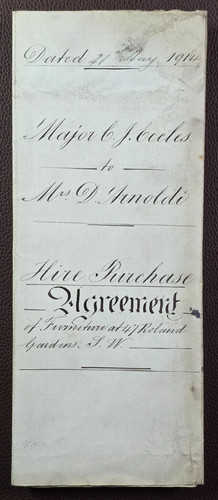 Dated 21st May 1914
Major C. J. Eccles
to
Mrs D. Arnoldi
Hire Purchase
Agreement
of Furniture at 47 Roland
Gardens. S. W.